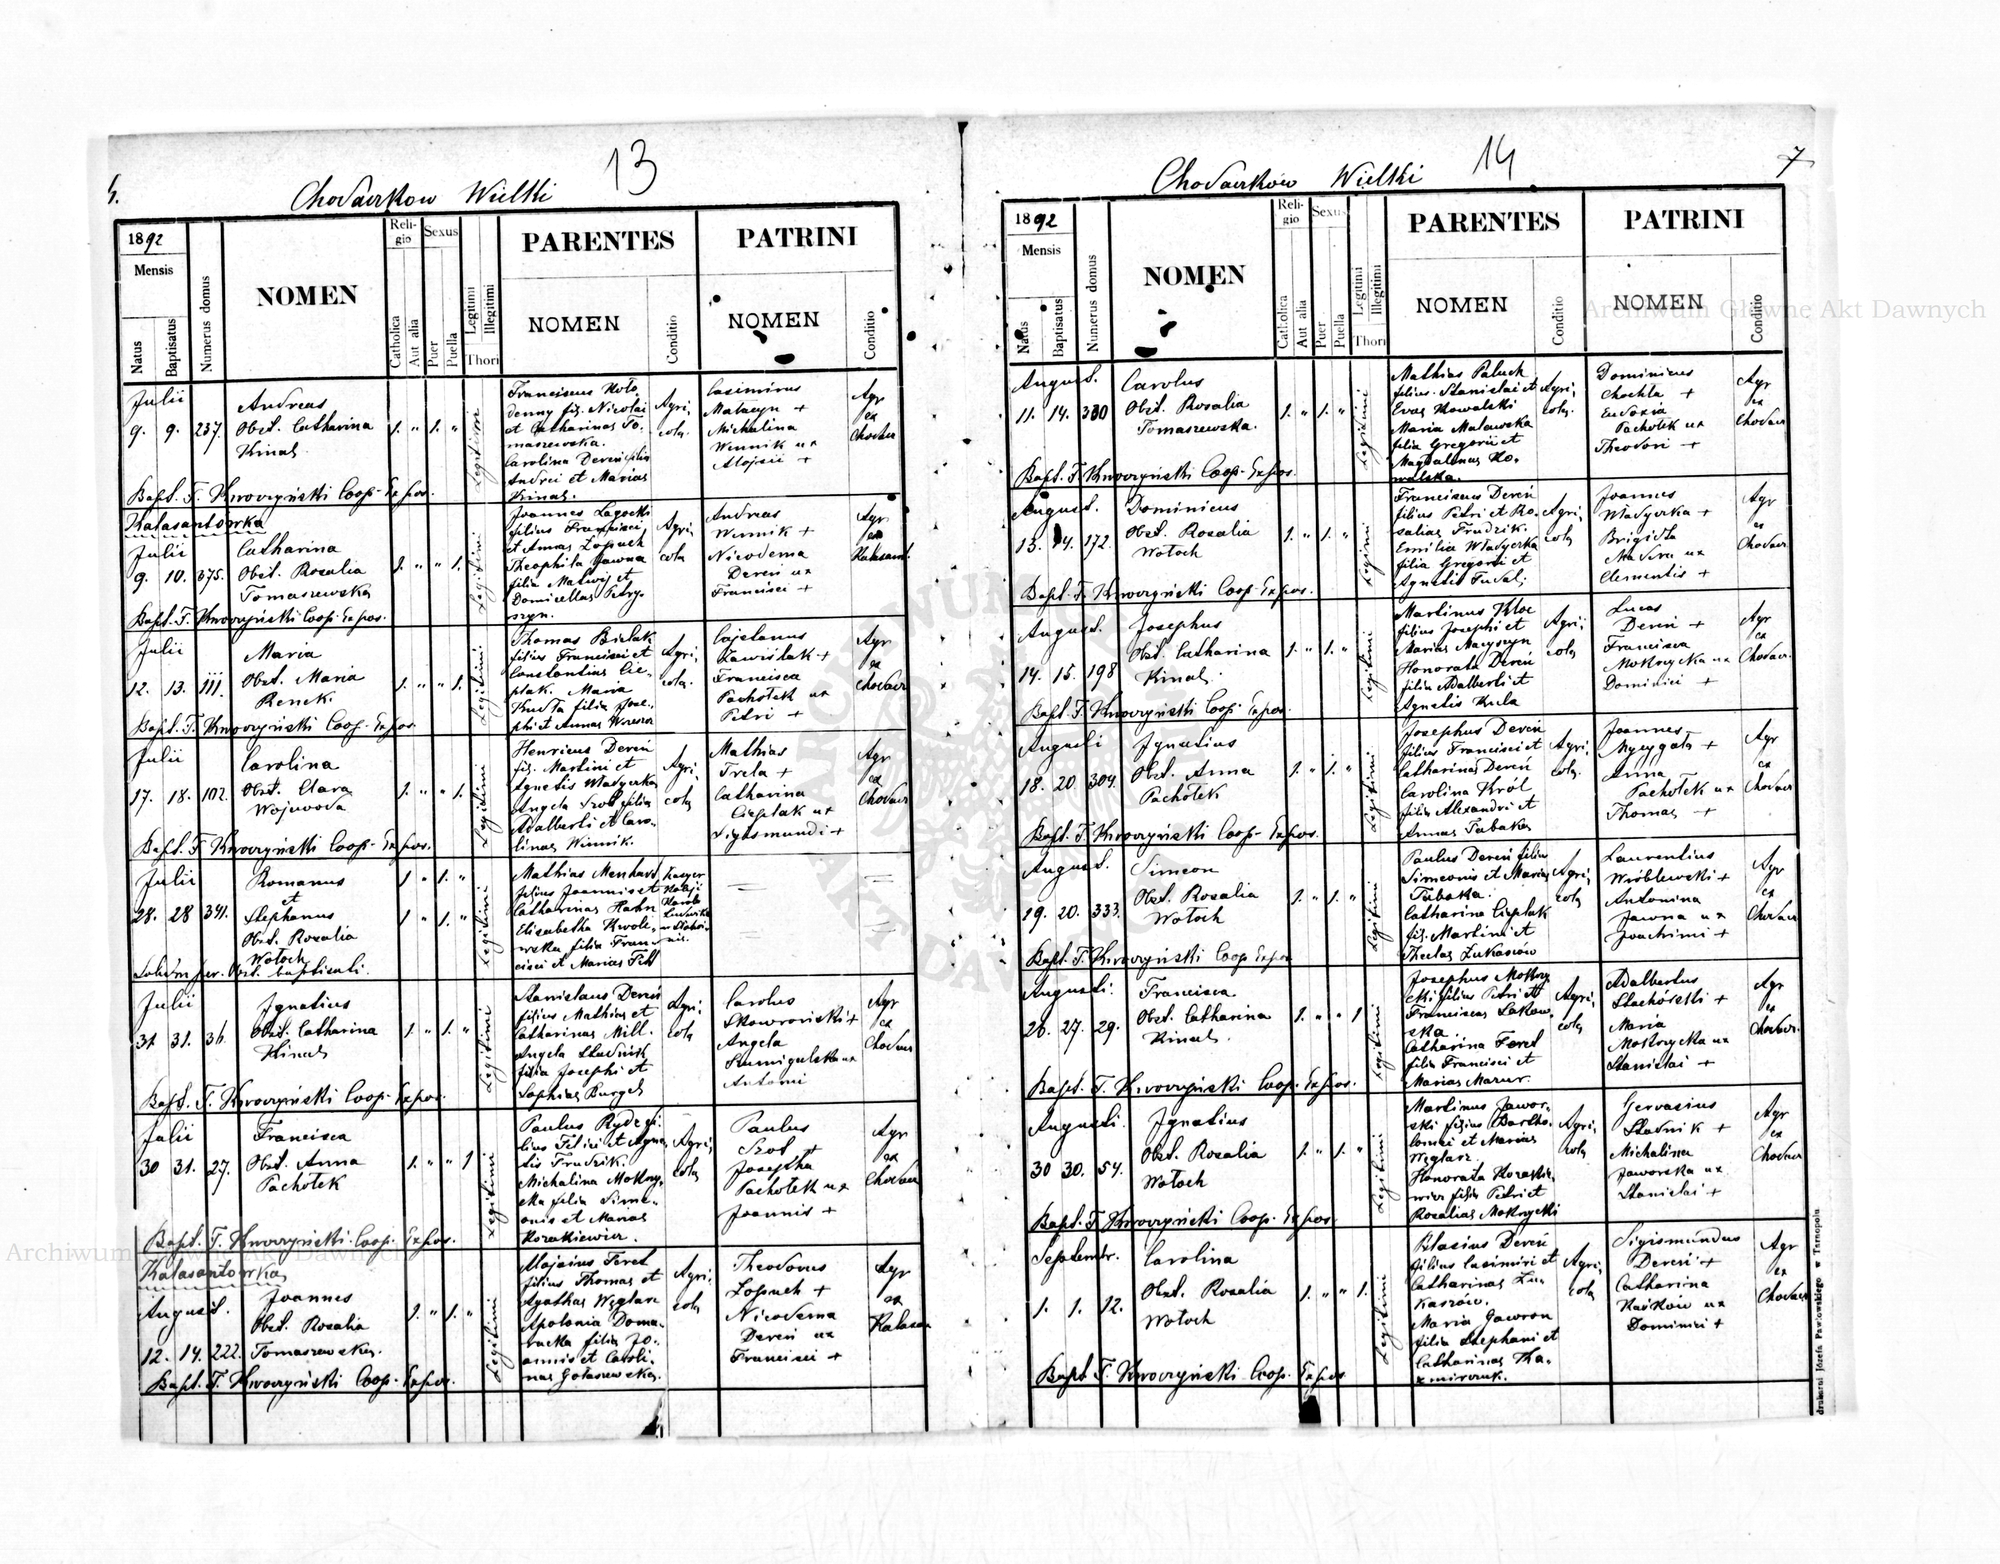 13
Chodaczkow Wielki
1892
Mensis
Natus
Baptisatus
Numerus domus
NOMEN
Religio
Catholica
Aut alia
Sexus
Puer
Puella
Legitimi
Illegitimi
Thori
PARENTES
NOMEN
Conditio
PATRINI
NOMEN
Conditio
Julii
9. 9. 237.
Andreas
Obst. Catharina
Kinal
1. " 1. "
Legitimi
Franciscus Koło
denny fil. Nicolai
et Catharinae To-
maszewska.
Carolina Dereń filia
Andrei et Mariae
Kinal.
Agri,
cola.
Casimirus
Mataczyn +
Michalina
Winnik ux
Aloisii +
Agr
ex
Chodacz
Bapt. F. Kwoczyński Coop. Expos.
Kalasantowka
Julii
9. 10. 375.
Catharina
Obst. Rosalia
Tomaszewska
1. " " 1.
Legitimi
Joannes Łagocki
filius Francisci
et Annae Łopuch
Theophila Jawna
filia Mathij et
Domicellae Petry-
szyn.
Agri,
cola
Andreas
Winnik +
Nicodema
Dereń ux
Francisci +
Agr
ex
Kalasant.
Bapt. F. Kwoczyński Coop. Expos.
Julii
12. 13. 111.
Maria
Obst. Maria
Renek
1. " " 1.
Legitimi
Thomas Bielak
filius Francisci et
Constantiae Cie-
plak. Maria
Kusta filia Jose-
phi et Annae
Agri,
cola.
Cajetanus
Zawiślak +
Francisca
Pachołek ux
Petri +
Agr
ex
Chodacz
Bapt. F. Kwoczyński Coop. Expos.
Julii
17. 18. 102.
Carolina
Obst. Clara
Wojewoda
1. " " 1.
Legitimi
Henricus Dereń
fil. Martini et
Agnetis Władyczka
Angela Szot filia
Adalberti et Caro-
linae Winnik.
Agri,
cola
Mathias
Trela +
Catharina
Cieplak ux
Sigismundi +
Agr
ex
Chodacz
Bapt. F. Kwoczyński Coop. Expos.
Julii
28. 28 341.
Romanus
et
Stephanus
Obst. Rosalia
Wołoch
1 " 1. "
1 " 1. "
Legitimi
Mathias Menhard
filius Joannis et
Catharinae Hahn
Elisabetha Kwole-
wska filia Fran-
cisci et Mariae
Julii
31. 31. 36.
Ignatius
Obst. Catharina
Kinal
1. " 1. "
Legitimi
Stanislaus Dereń
filius Mathiae et
Catharinae Mill.
Angela Studnik
filia Josephi et
Sophiae Burgel
Agri,
cola
Carolus
Skowroński +
Angela
Szumigulska ux
Antoni
Agr
ex
Chodacz
Bapt. F. Kwoczyński Coop. Expos.
Julii
30 31. 27.
Francisca
Obst. Anna
Pachołek
1. " " 1
Legitimi
Paulus Rydz fi-
lius Felici et Agne-
tis Frudzik.
Michalina Mokrzy-
cka filia Sime-
onis et Mariae
Kozakiewicz.
Agri,
cola
Paulus
Szot +
Josepha
Pachołek ux
Joannis +
Agr
ex
Chodacz
Bapt. F. Kwoczyński Coop. Expos.
Kalasantowka
August.
12. 14. 222.
Joannes
Obst. Rosalia
Tomaszewska.
1. " 1. "
Legitimi
Alojsius Feret
filius Thomae et
Agathae Węglarz
Apolonia Doma-
racka filia Jo-
annis et Caroli-
nae Gołaszewska.
Agri,
cola
Theodorus
Łopuch +
Nicodema
Dereń ux
Francisci +
Agr
ex
Kalasan
Bapt. F. Kwoczyński Coop. Expos.
14
7
Chodaczkow Wielki
1892
Mensis
Natus
Baptisatus
Numerus domus
NOMEN
Religio
Catholica
Aut alia
Sexus
Puer
Puella
Legitimi
Illegitimi
Thori
PARENTES
NOMEN
Conditio
PATRINI
NOMEN
Conditio
August.
11. 14. 330
Carolus
Obst. Rosalia
Tomaszewska.
1. " 1. "
Legitimi
Mathias Paluch
filius Stanislai et
Evae Kowalski
Maria Malewska
filia Gregorii et
Magdalenae Ko-
walska.
Agri,
cola.
Dominicus
Chochla +
Eudoxia
Pachołek ux
Theodori +
Agr
ex
Chodacz
Bapt. F. Kwoczyński Coop. Expos.
August.
13. 14. 172.
Dominicus
Obst. Rosalia
Wołoch
1. " 1. "
Legitimi
Franciscus Dereń
filius Petri et Ro-
saliae Frudzik.
Emilia Władyczka
filia Gregorii et
Agnetis
Agri,
cola
Joannes
Władyczka +
Brigida
ux
Clementis +
Agr
ex
Chodacz
Bapt. F. Kwoczyński Coop. Expos.
August.
14. 15. 198
Josephus
Obst. Catharina
Kinal.
1. " 1. "
Legitimi
Martinus Kloc
filius Josephi et
Mariae Maryszyn
Honorata Dereń
filia Adalberti et
Agnetis Kula
Agri,
cola
Lucas
Dereń +
Francisca
Mokrzycka ux
Dominici +
Agr
ex
Chodacz.
Bapt. F. Kwoczyński Coop. Expos.
Augusti
18. 20 304.
Ignatius
Obst. Anna
Pachołek
1. " 1. "
Legitimi
Josephus Dereń
filius Francisci et
Catharinae Dereń
Carolina Król
filia Alexandri et
Annae Tabaka
Agri,
cola.
Joannes
+
Anna
Pachołek ux
Thomae +
Agr
ex
Chodacz
Bapt. F. Kwoczyński Coop. Expos.
August.
19. 20. 333.
Simeon
Obst. Rosalia
Wołoch
1. " 1. "
Legitimi
Paulus Dereń filius
Simeonis et Mariae
Tabaka.
Catharina Cieplak
fil. Martini et
Theclae Łukasiów
Agri,
cola
Laurentius
Wróblewski +
Antonina
Jawna ux
Joachimi +
Agr
ex
Chodacz
Bapt. F. Kwoczyński Coop Expos
Augusti.
26. 27. 29.
Francisca
Obst. Catharina
Kinal.
1. " " 1
Legitimi
Josephus Mokrzy
cki filius Petri et
Franciscae Łakow-
ska.
Catharina Feret
filia Francisci et
Mariae Mazur.
Agri,
cola
Adalbertus
Stachórski +
Maria
Mokrzycka ux
Stanislai +
Agr
ex
Chodacz.
Bapt. F. Kwoczyński Coop. Expos.
Augusti.
30 30. 54.
Ignatius
Obst. Rosalia
Wołoch
1. " 1. "
Legitimi
Martinus Jawor-
ski filius Bartho-
lomei et Mariae
Węglarz.
Honorata Kozakie-
wicz filia Petri et
Rosaliae Mokrzycki
Agri,
cola
Gervasius
Studnik +
Michalina
Jaworska ux
Stanislai +
Agr
ex
Chodacz
Bapt. F. Kwoczyński Coop. Expos.
Septembr.
1. 1. 12.
Carolina
Obst. Rosalia
Wołoch
1. " " 1.
Legitimi
Blasius Dereń
filius Casimiri et
Catharinae Łu-
kasiów.
Maria Gawron
filia Stephani et
Catharinae Ka-
zmirczuk.
Agri,
cola
Sigismundus
Dereń +
Catharina
ux
Dominici +
Agr
ex
Chodacz
Bapt. F. Kwoczyński Coop. Expos
drukarni Józefa Pawłowskiego w Tarnopolu
Archiwum Główne Akt Dawnych
Archiwum Główne Akt Dawnych
ARCHIWUM GŁÓWNE AKT DAWNYCH